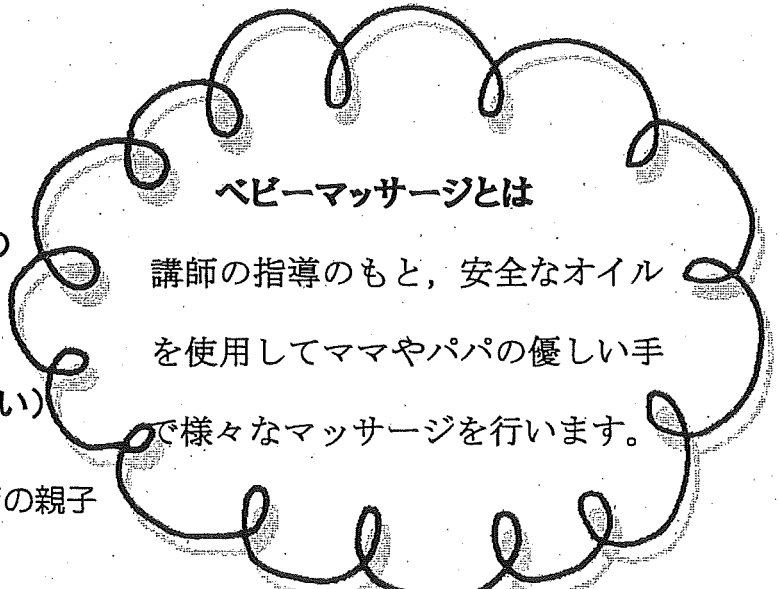 ベビーマッサージとは
講師の指導のもと，安全なオイル
を使用してママやパパの優しい手
で様々なマッサージを行います。
の
い）
の親子